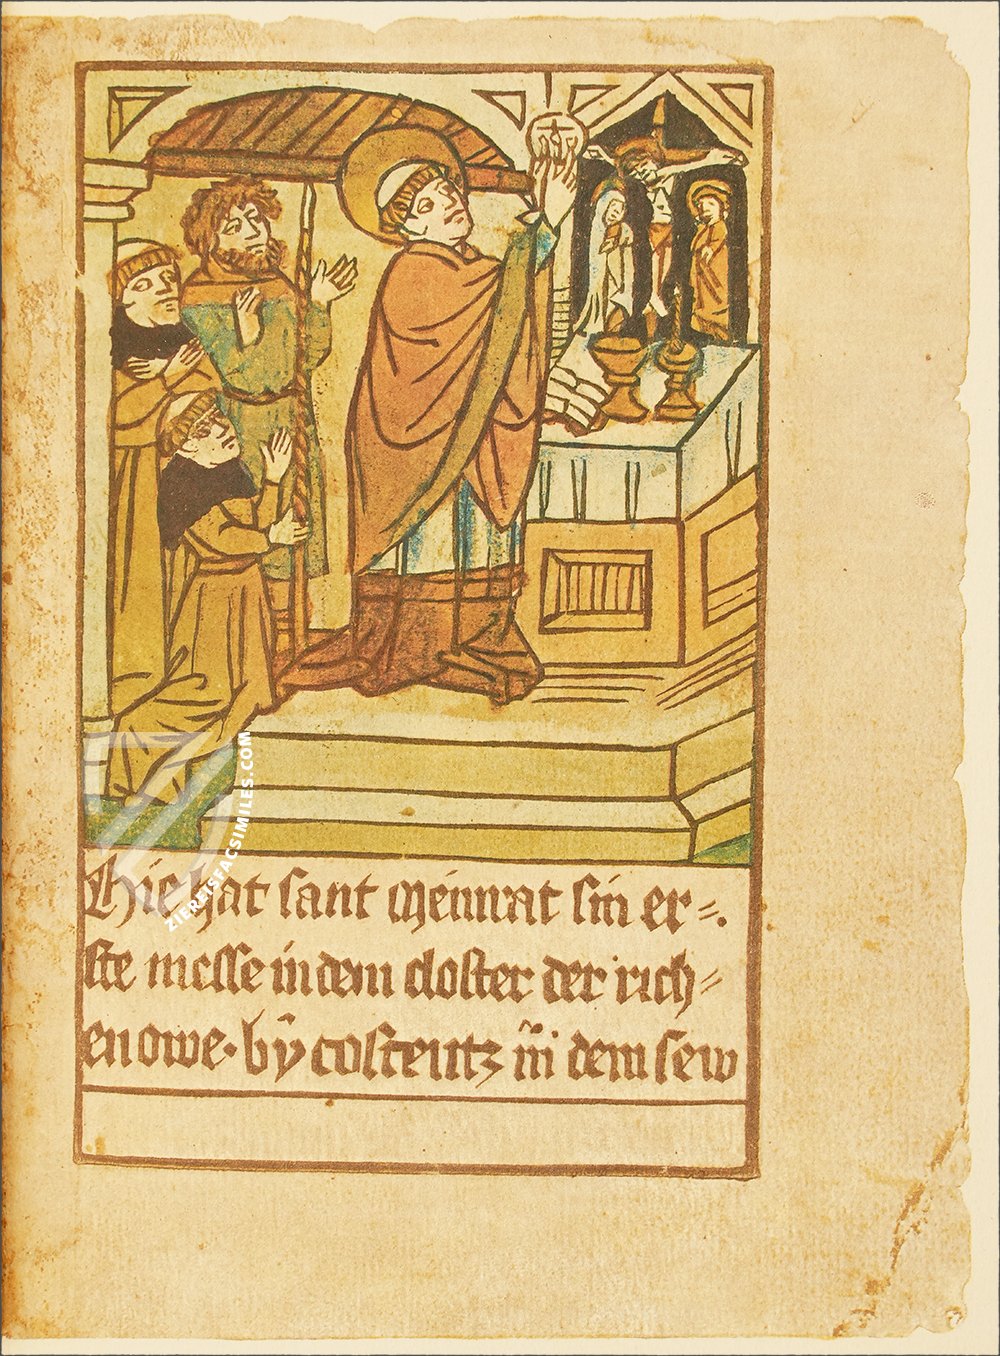 Hie hat sant Meinrat sin er=.
ste messe in dem closter der rich=
en owe. bӱ costentz in dem sew
ZIEREISFACSIMILES.COM